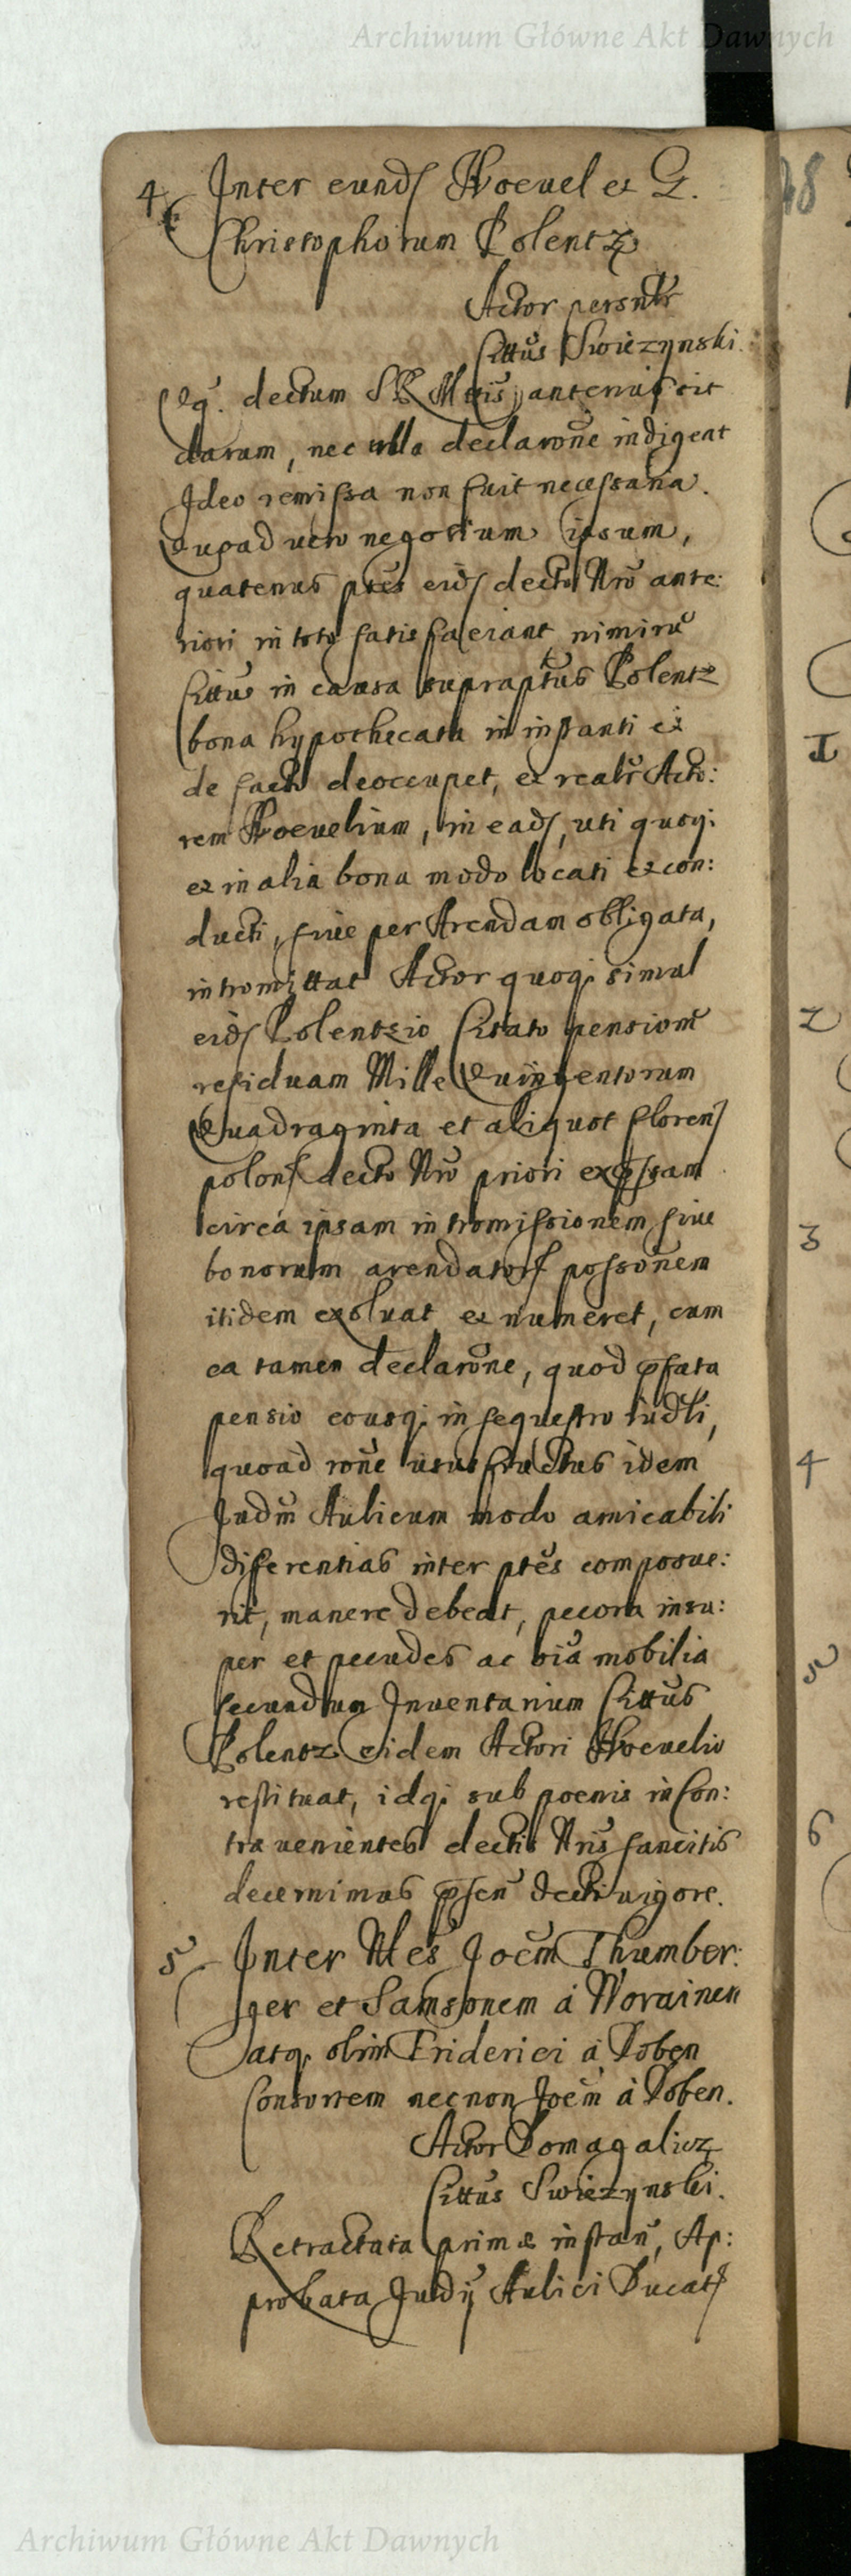 Archiwum Główne Akt Dawnych
48
4. Inter eund Hoeuel et G.
Christophorum Polentz
Actor persnłr
Cittus Swiezynski.
dectum S R Mttis anterius sit
clarum, nec ulla declarone indigeat
Ideo remissa non fuit necessaria.
Quoad vero negotium ipsum,
quatenus ptes eid decto Nro ante:
riori in toto satisfaciant nimiru
Cittus in causa supraptus Polentz
bona hypothecata in instanti et
de facto deoccupet, et realr Acto:
rem Hoeuelium, in ead, uti quoq;
et in alia bona modo locati et con:
ducti, siue per Arendam obligata,
intromittat Actor quoq; simul
eid Polentzio Citato pensionem
residuam Mille Quingentorum
Quadraginta et aliquot floren
polon decto Nro priori expssam
circa ipsam intromissionem siue
bonorum arendator possonem
itidem exoluat et numeret, cum
ea tamen declarone, quod pfata
pensio eousq; in sequestro iudli,
quoad rone ususfructus idem
Judm Aulicum modo amicabili
diferentias inter ptes composue:
rit, manere debeat, pecora insu:
per et pecudes ac oia mobilia
secundum Inuentarium Cittus
Polentz eidem Actori Hoeuelio
restituat, idq; sub poenis in Con:
trauenientes dectis Nris sancitis
decernimus psen decti uigore.
5 Inter Nles Joem Thumber:
ger et Samsonem á Worainen
atq. olim Friderici á Doben
Consortem necnon Joem á Doben.
Actor Domagalicz
Cittus Swiezynski.
Retractata primæ instan, Ap:
probata Judij Aulici Ducat
1
2
3
4
5
6
Archiwum Główne Akt Dawnych